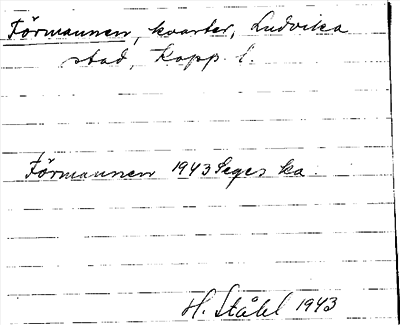 Förmannen, kvarter, Ludvika
stad, Kopp. l.
Förmannen 1943 Seges ka.
H. Ståhl 1943